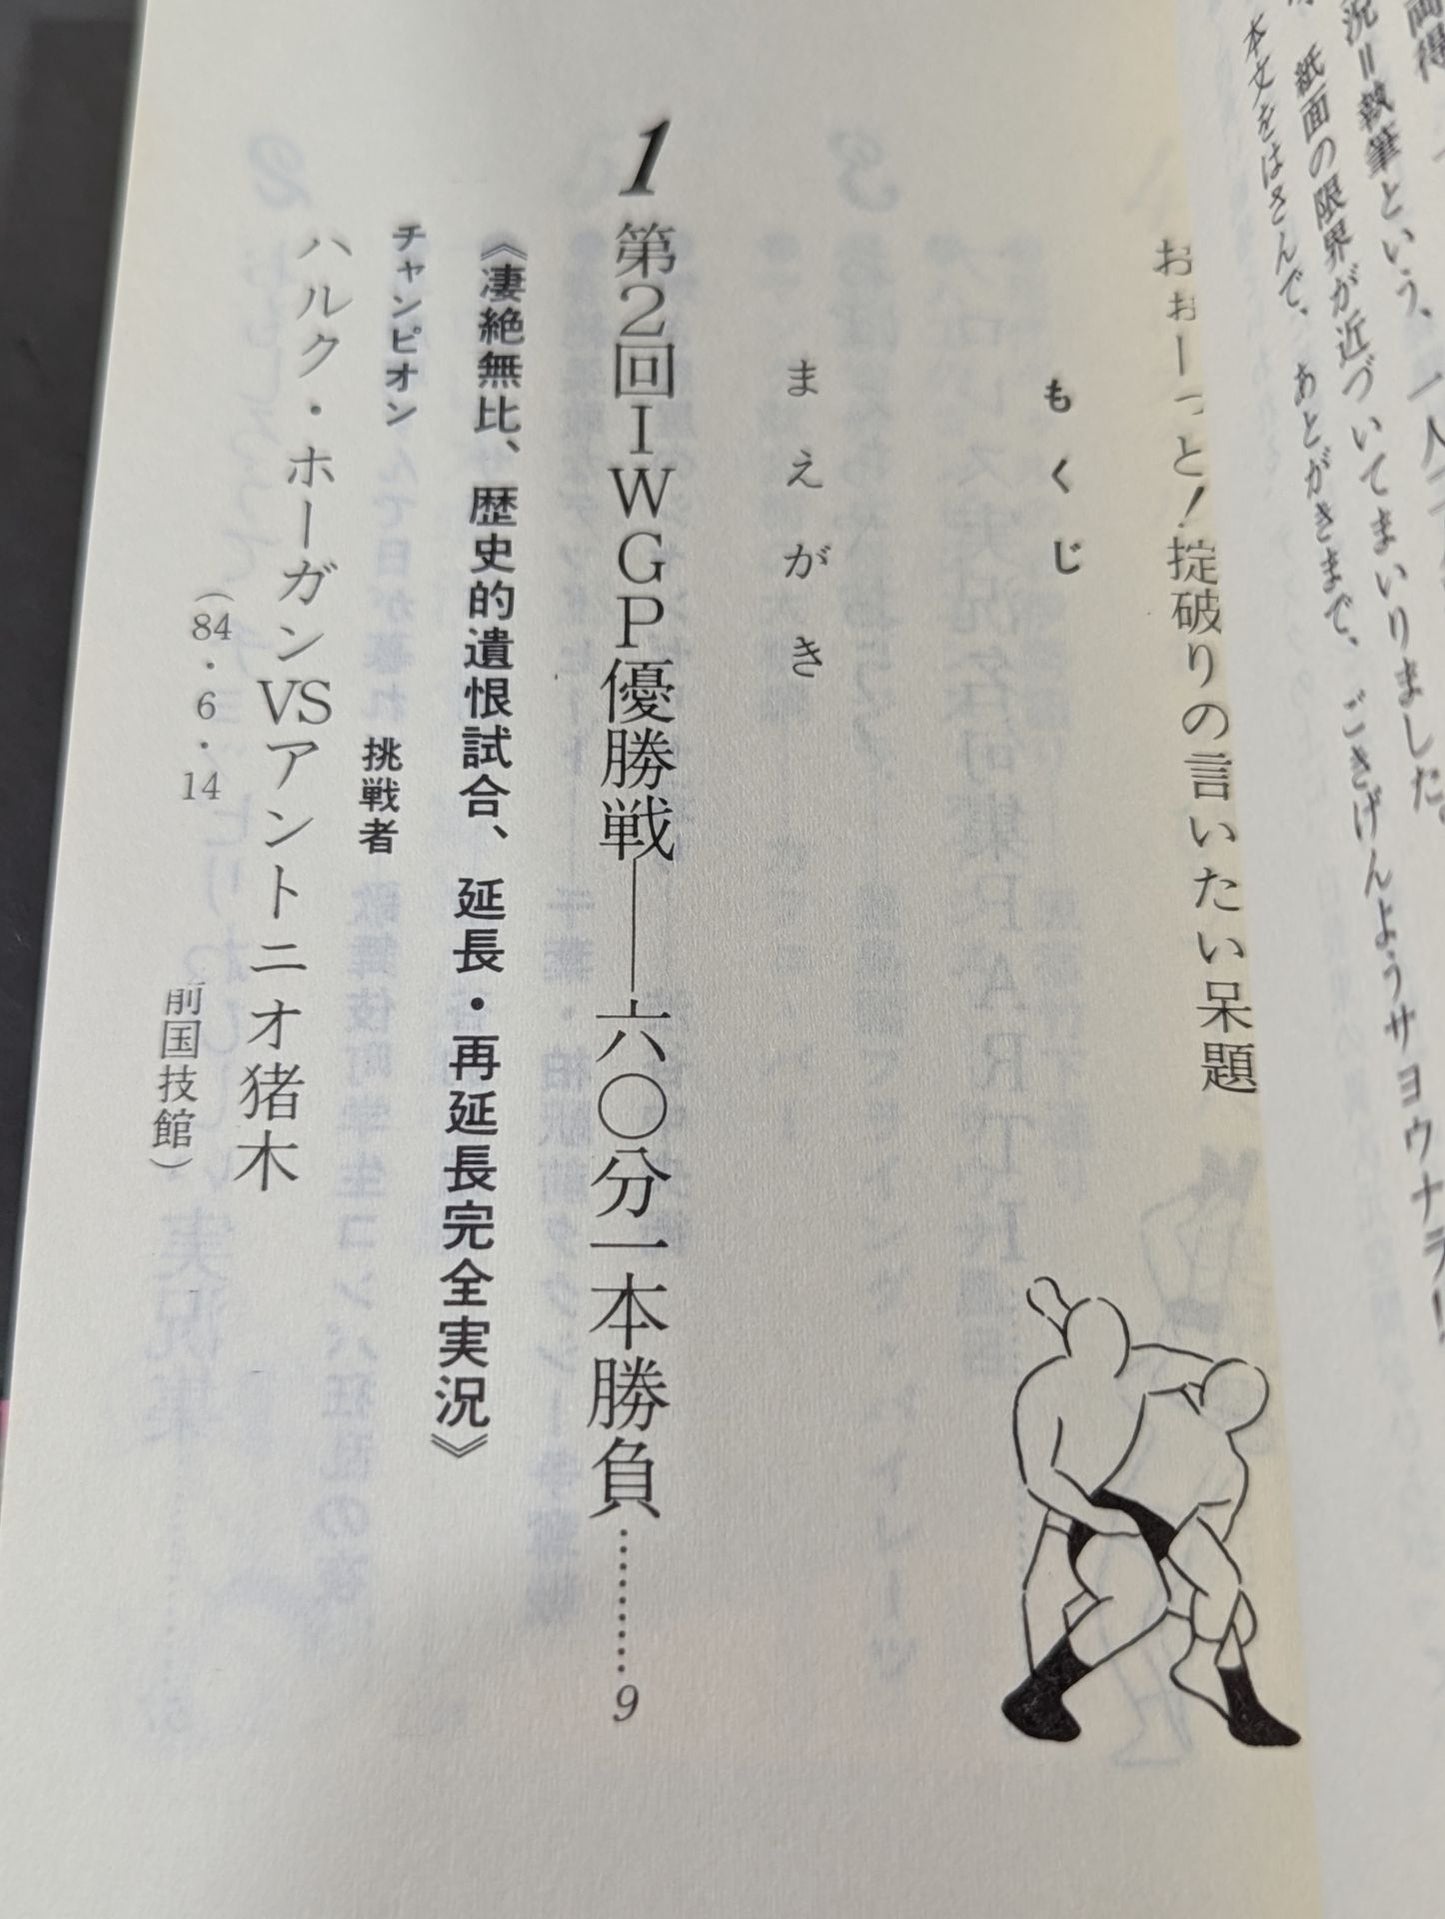 両得
況＝執筆という、一人二
紙面の限界が近づいてまいりました。
本文をはさんで、あとがきまで、ごきげんようサヨウナラ！
おぉーっと！掟破りの言いたい呆題
もくじ
まえがき
1 第2回IWGP優勝戦――六〇分一本勝負………9
《凄絶無比、歴史的遺恨試合、延長・再延長完全実況》
チャンピオン 挑戦者
ハルク・ホーガンVSアントニオ猪木
（84・6・14 前国技館）